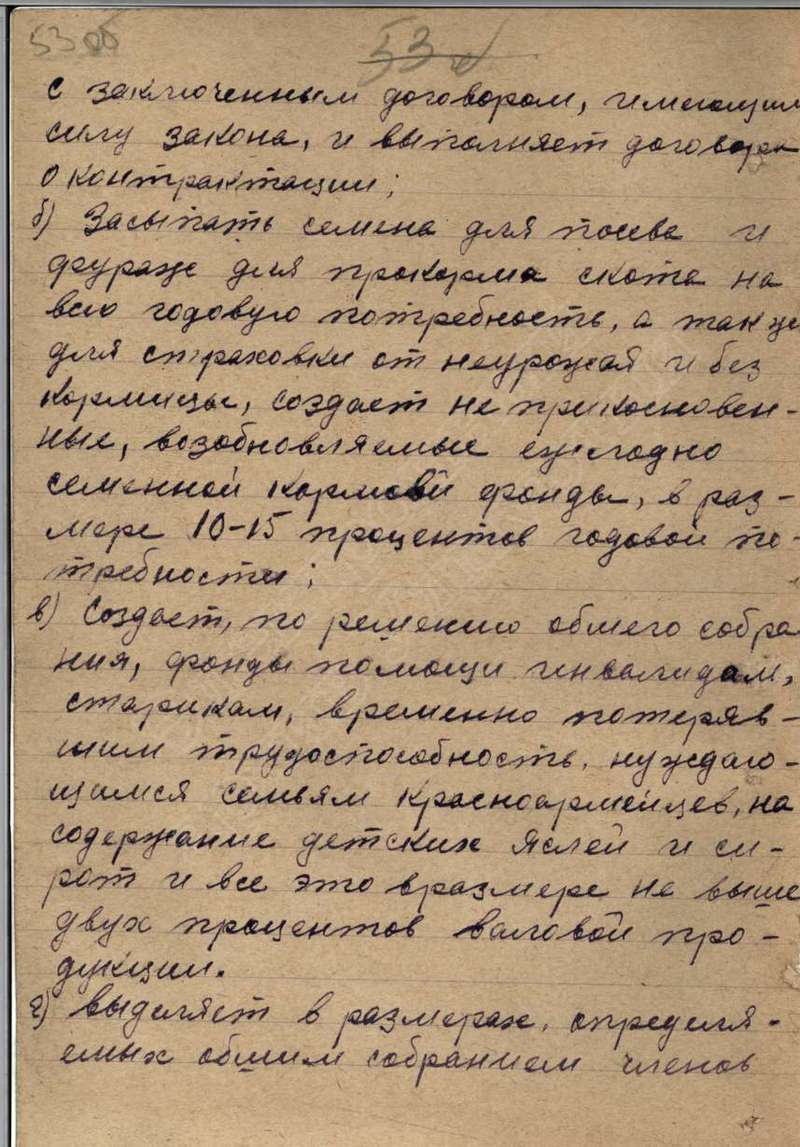 53 об
53
с заключенным договором, имеющим
силу закона, и выполняет договора
о контрактации;
б) Засыпать семена для посева и
фураж для прокорма скота на
всю годовую потребность, а так же
для страховки от неурожая и без
кормицы, создает не прикосновен-
ные, возобновляемые ежегодно
семенной кормовой фонды, в раз-
мере 10-15 процентов годовой по-
требности;
в) Создает, по решению общего собра
ния, фонды помощи инвалидам,
старикам, временно потеряв-
шим трудоспособность, нуждаю-
щимся семьям красноармейцев, на
содержание детских яслей и си-
рот и все это в размере не выше
двух процентов валовой про-
дукции.
г) выделяет в размерах, определя-
емых общим собранием членов